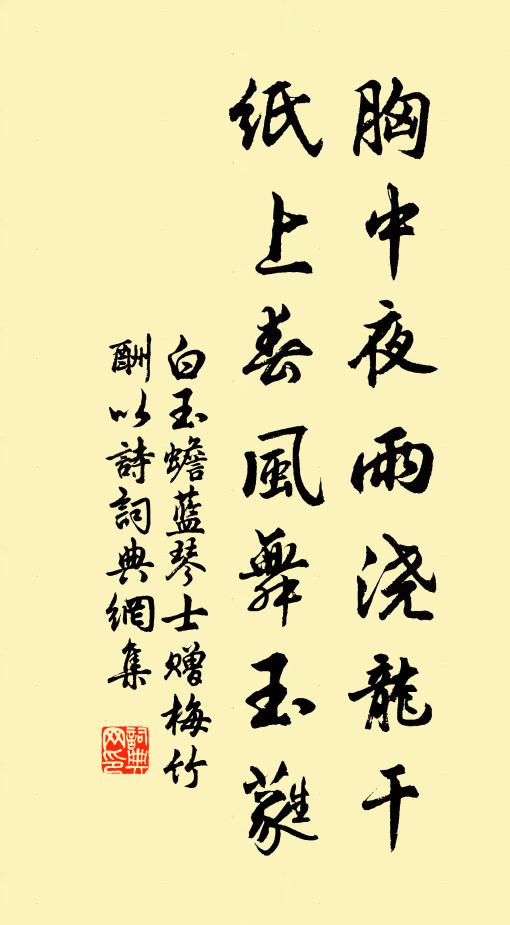 胸中夜雨浇龍干
纸上春風舞玉蕤
白玉蟾蓝琴士赠梅竹
酬以詩詞典網集
詞典网印